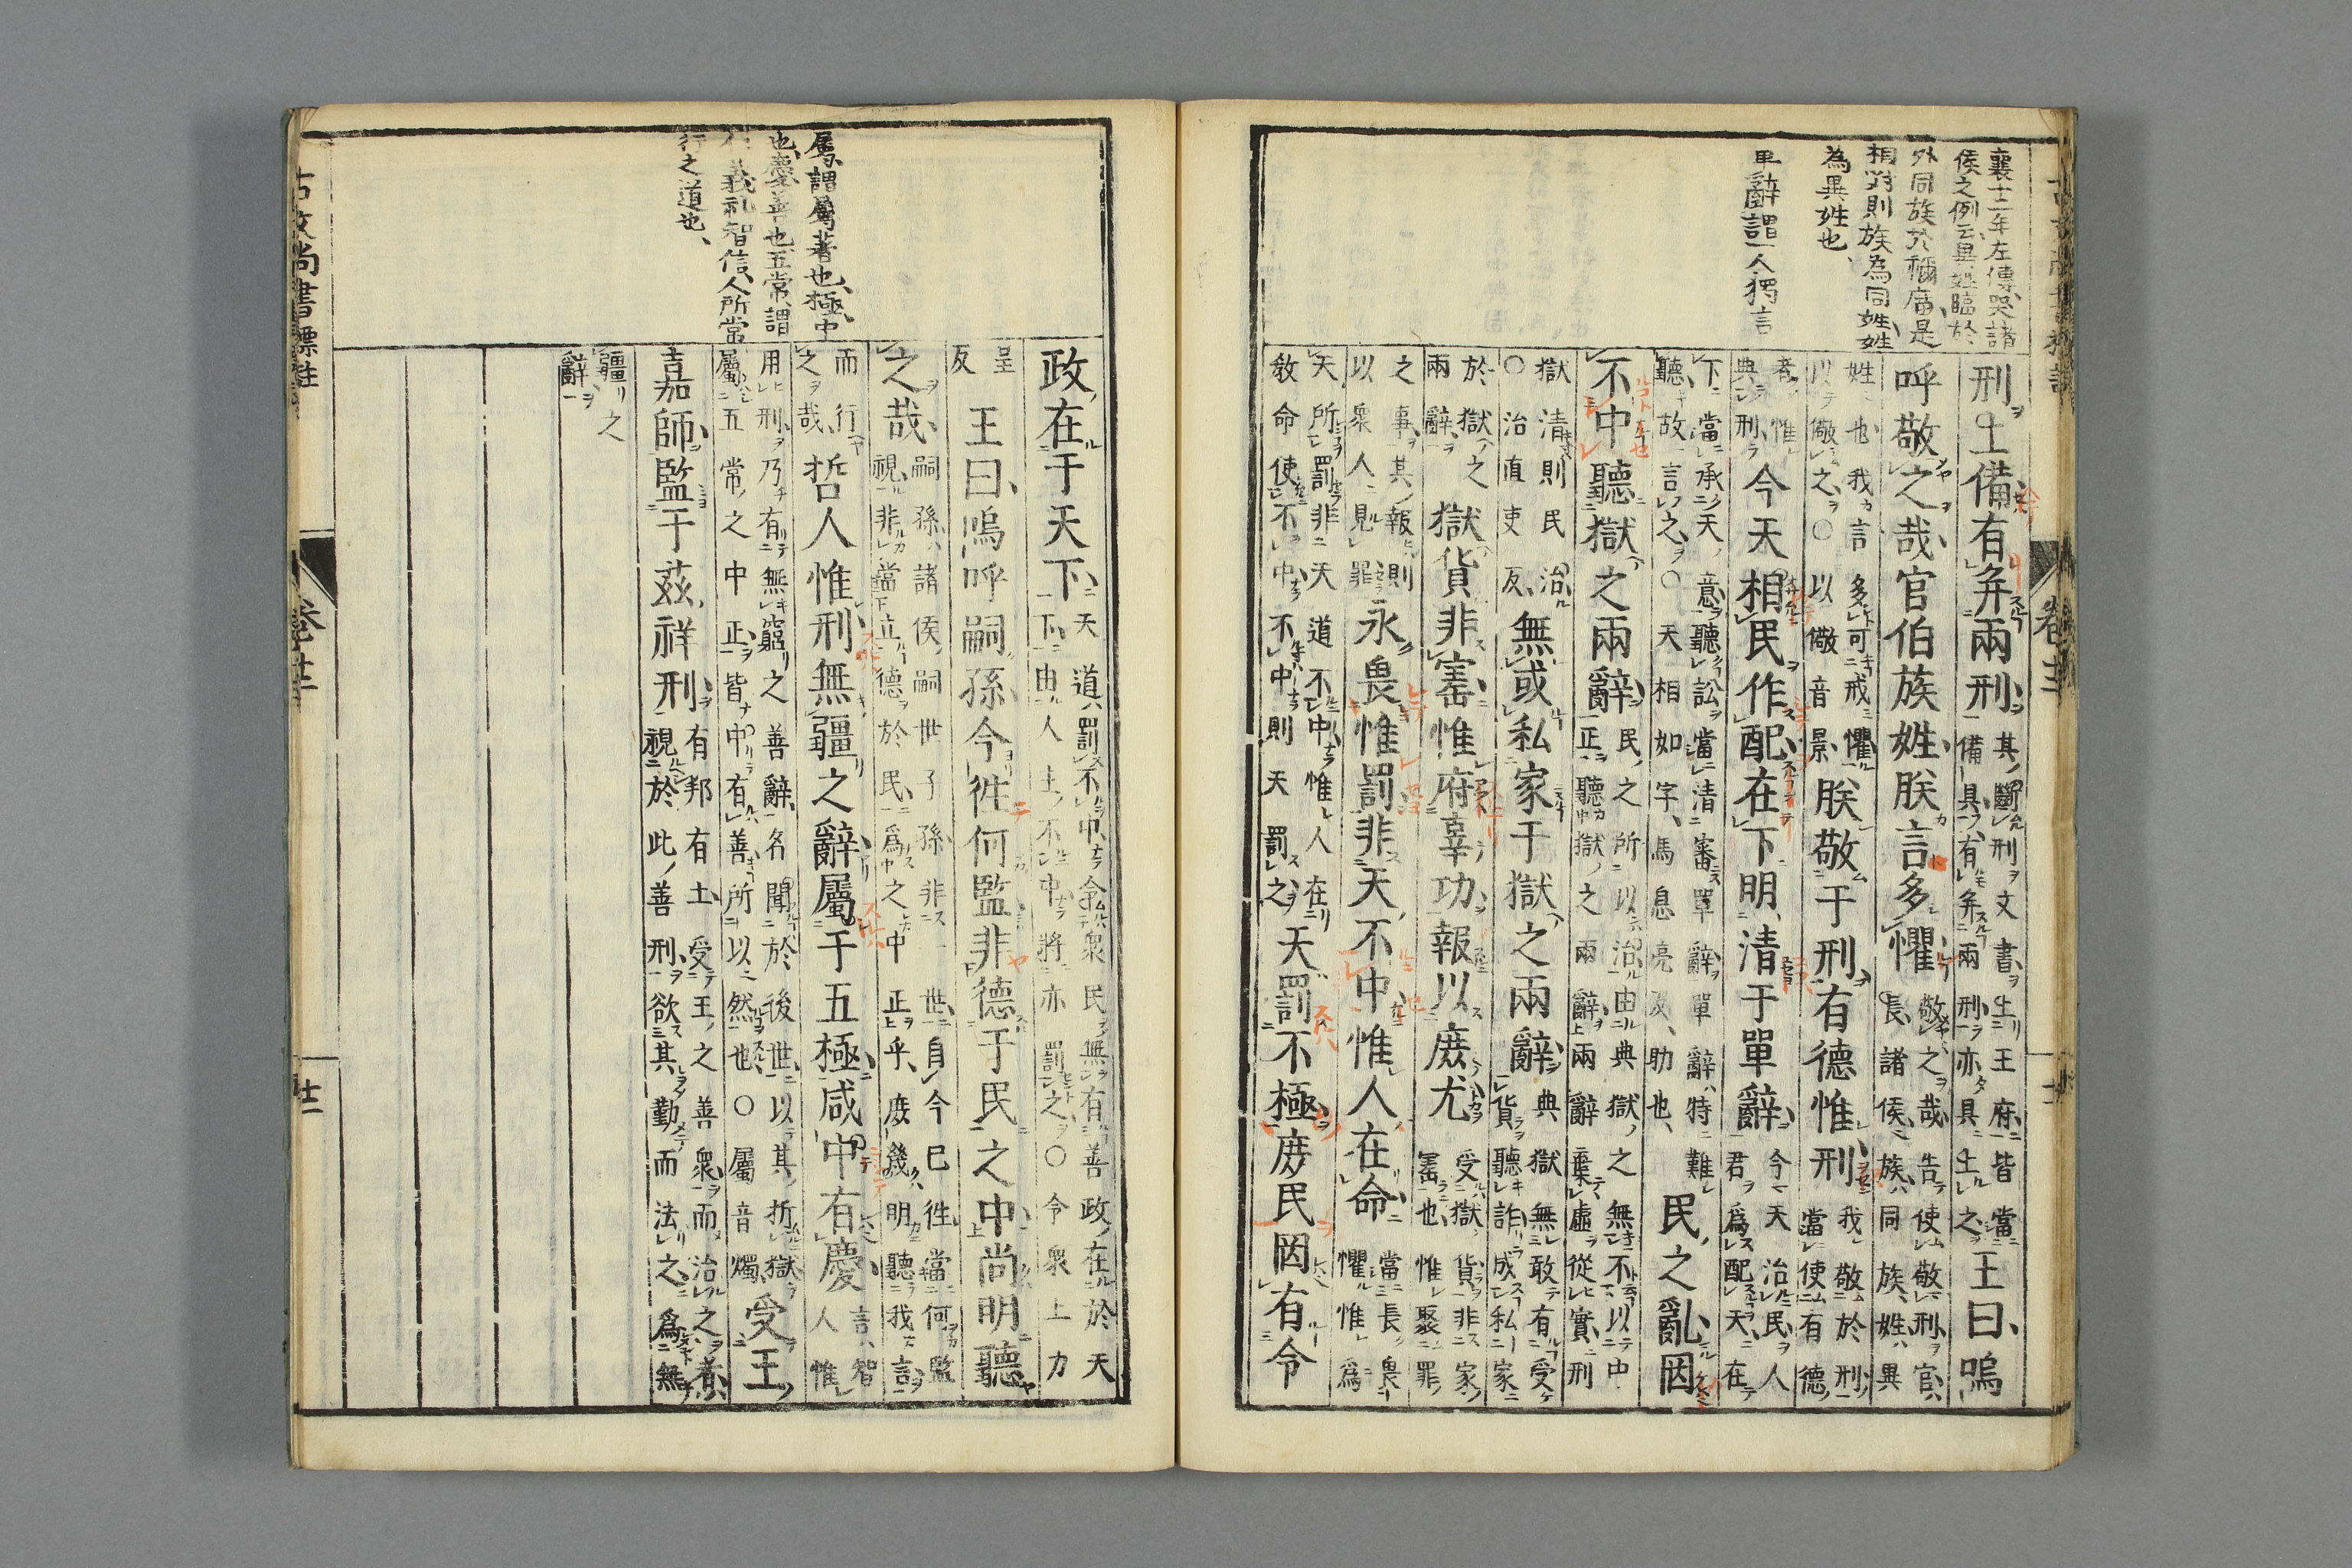 襄十二年左傳哭諸
侯之例云異姓臨於
外同族於禰廟是
相對則族為同姓姓
為異姓也、
單辭謂一人獨言
刑上備有并兩刑
其斷刑文書上王府皆當
備具有并兩刑亦具上之
王曰嗚
呼敬之哉官伯族姓朕言多懼
敬之哉告使敬刑官
長諸侯族同族姓異
姓也我言多可戒懼
以儆之○以儆音景
朕敬于刑有德惟刑
我敬於刑
當使有德
者惟
典刑
今天相民作配在下明清于單辭
今天治民人
君爲配天在
下當承天意聽訟當清審單辭單辭特難
聽故言之○天相如字馬息亮反助也
民之亂罔
不中聽獄之兩辭
民之所以治由典獄之無不以中
正聽獄之兩辭兩辭棄虛從實刑
獄清則民治
○治直吏反
無或私家于獄之兩辭
典獄無敢有受
貨聽詐成私家
於獄之
兩辭
獄貨非寚惟府辜功報以庶尤
受獄貨非家
寚也惟聚罪
之事其報則
以衆人見罪
永畏惟罰非天不中惟人在命
當長畏
懼惟爲
天所罰非天道不中惟人在
敎命使不中不中則天罰之
天罰不極庶民罔有令
屬謂屬著也極中
也慶善也五常謂
義礼智信人所常
行之道也、
政在于天下
天道罰不中令衆民無有善政在於天
下由人主不中將亦罰之○令衆上力
呈
反
王曰嗚呼嗣孫今徃何監非德于民之中尚明聽
之哉
嗣孫諸侯嗣世子孫非一世自今已徃當何監
視非當立德於民爲之中正乎庶幾明聽我言
而行
之哉
哲人惟刑無疆之辭屬于五極咸中有慶
言智
人惟
用刑乃有無窮之善辭名聞於後世以其折獄
屬五常之中正皆中有善所以然也○屬音燭
受王
嘉師監于茲祥刑
有邦有土受王之善衆而治之者
視於此善刑欲其勤而法之爲無
疆之
辭
古文尚書標註